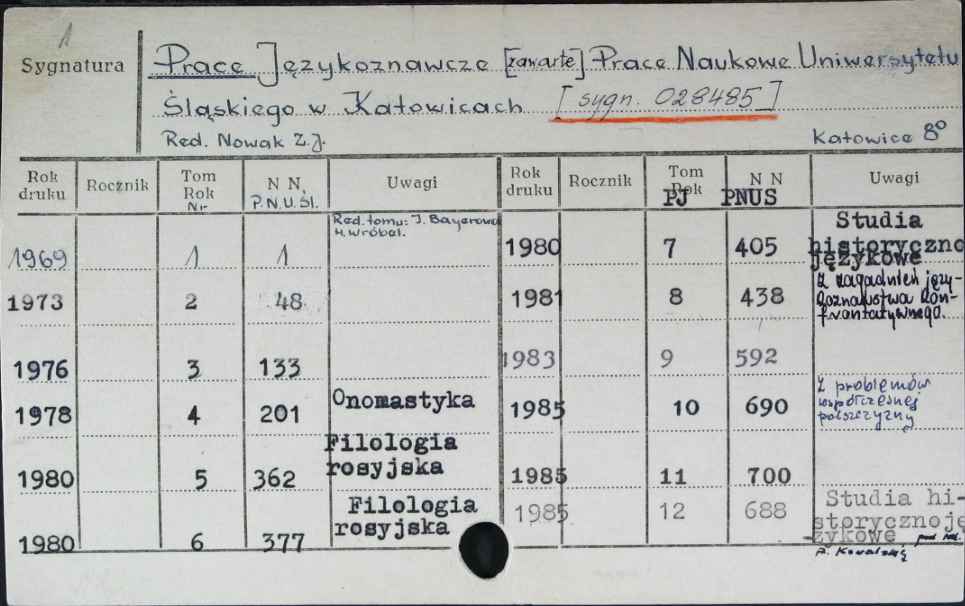 1
Sygnatura
Prace Językoznawcze [zawarte] Prace Naukowe Uniwersytetu
Śląskiego w Katowicach [sygn. 028485]
Red. Nowak Z.J. Katowice 8°
Rok druku Rocznik Tom Rok Nr N N, P.N.U.Śl. Uwagi
1969 1 1 Red. tomu: I. Bayerowa H. Wróbel.
1973 2 48
1976 3 133
1978 4 201 Onomastyka
1980 5 362 Filologia rosyjska
1980 6 377 Filologia rosyjska
Rok druku Rocznik Tom Rok PJ N N PNUS Uwagi
1980 7 405 Studia historyczno językowe
1981 8 438 Z zagadnień języ-
koznawstwa kon-
frontatywnego.
1983 9 592
1985 10 690 Z problemów
współczesnej
polszczyzny
1985 11 700
1985 12 688 Studia hi-
storycznoję
-zykowe pod red.
A. Kowalską